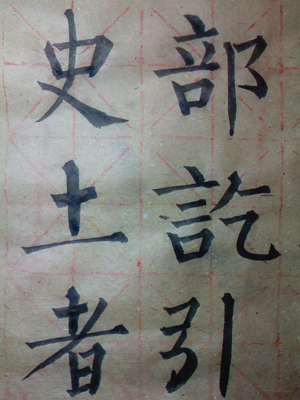 部訖引
史土者